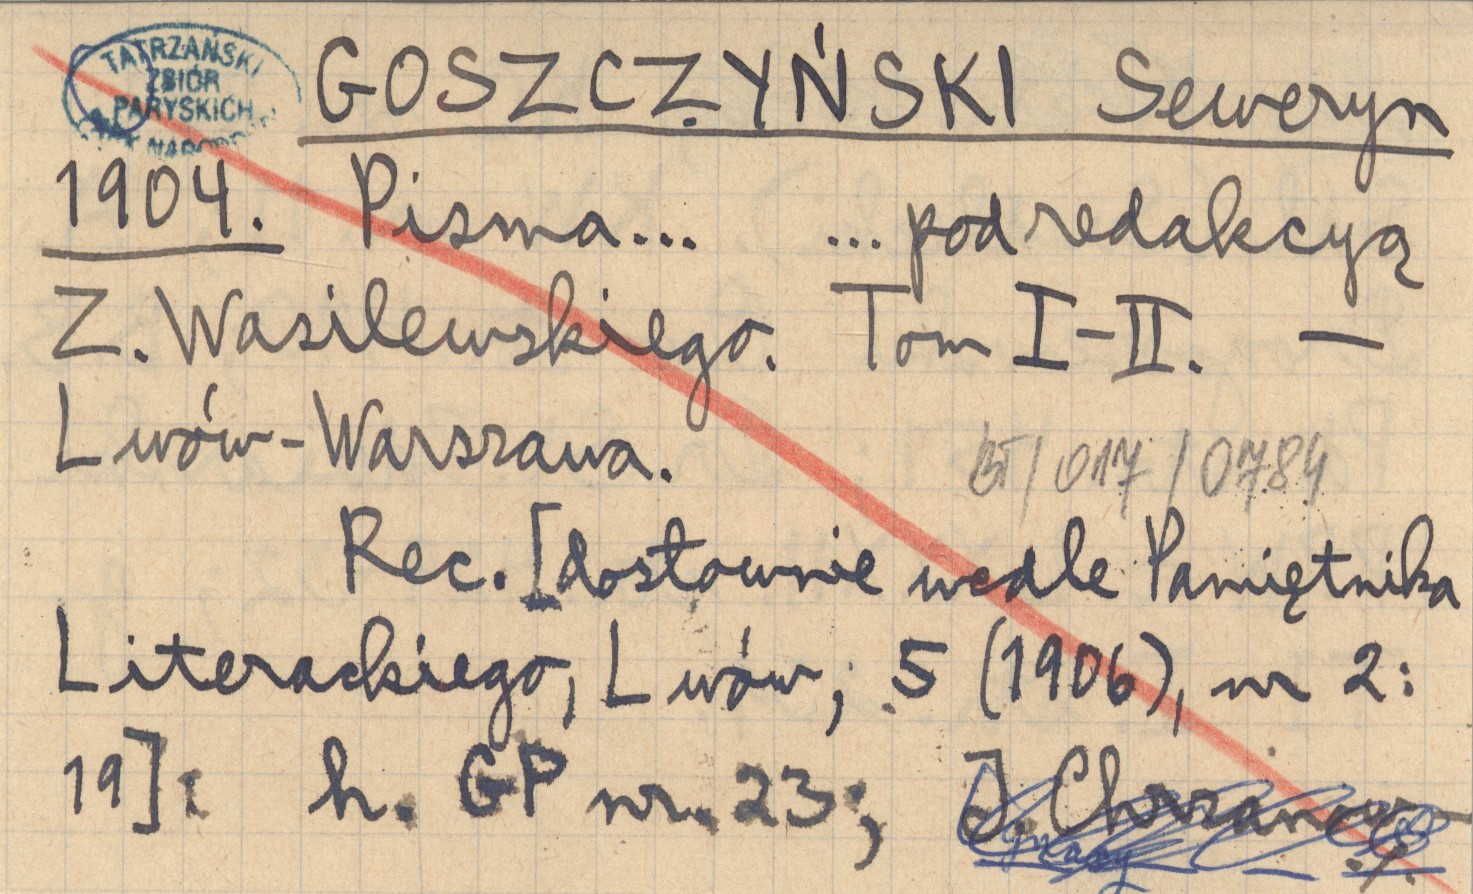 TATRZAŃSKI
ZBIÓR
PARYSKICH
GOSZCZYŃSKI Seweryn
1904. Pisma... ... pod redakcyą
Z. Wasilewskiego. Tom I-II. —
Lwów-Warszawa.
BT/017/0784
Rec. [dosłownie wedle Pamiętnika
Literackiego, Lwów, 5 (1906), nr 2:
19]: h. GP nr. 23; J. Chrzanow-